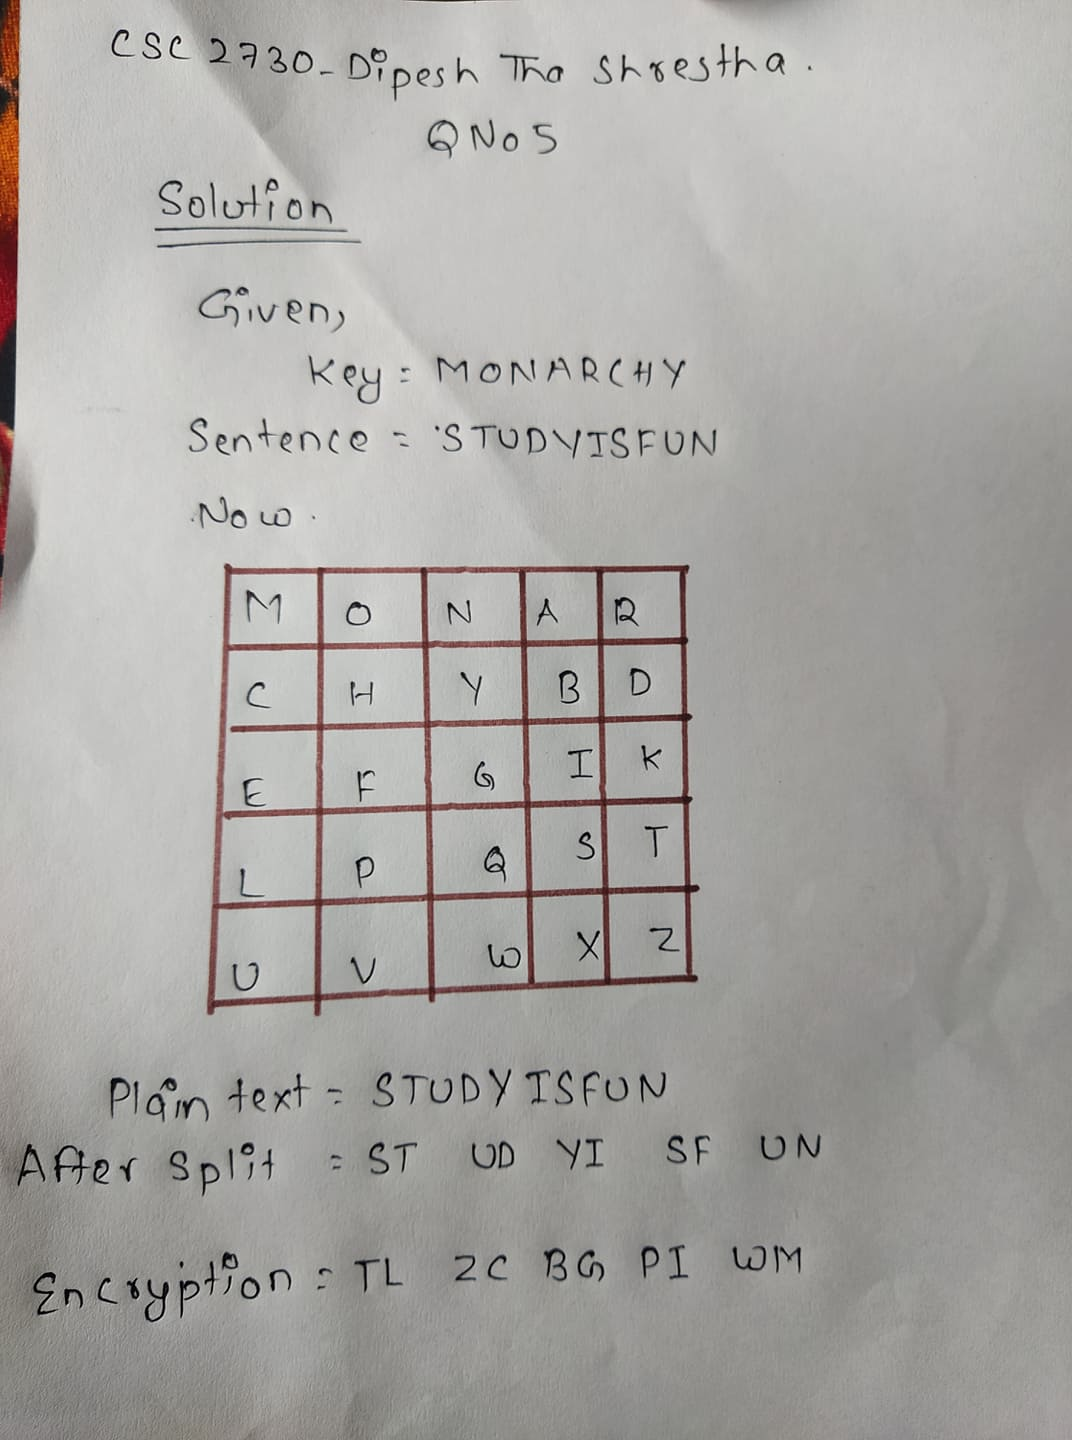 CSC 2730 - Dipesh Tha Shrestha.
Q No 5
Solution
Given,
Key = MONARCHY
Sentence = 'STUDYISFUN
Now.
M O N A R
C H Y B D
E F G I K
L P Q S T
U V W X Z
Plain text = STUDYISFUN
After Split = ST UD YI SF UN
Encryption = TL ZC BG PI WM